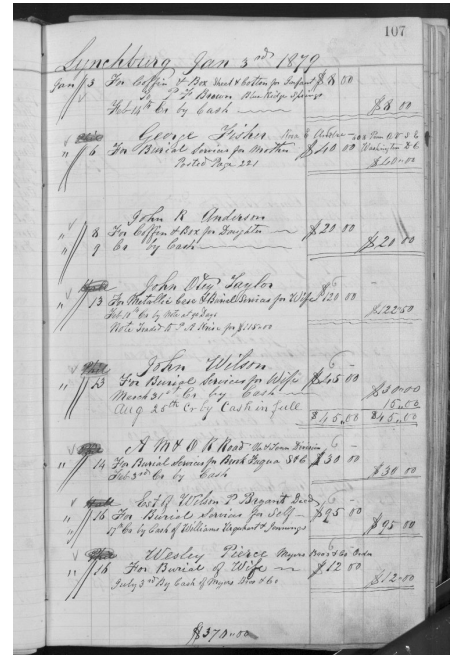 107
Lynchburg Jan 3rd 1879
Jan 3 For Coffin & Box Vault & Cotton for Infant $8 00
P F Brown Blue Ridge Springs
Feb 14th Cr by Cash $8 00
George Fisher
" 6 For Burial Services for Mother $40 00 Washington D C
Posted Page 221 $40.00
John R Anderson
" 8 For Coffin & Box for Daughter $20 00
" 9 Cr by Cash $20 00
John Otey Taylor
" 13 For Metallic Case & Burial Services for Wife $120 00
Feb 10th Cr by Note at 90 Days $122.50
Note Traded to P A Krise for $118.00
John Wilson
" 13 For Burial Services for Wife $45 00
March 31st Cr by Cash $30.00
Aug 25th Cr by Cash in full 15.00
$45.00 $45.00
A M & O R Road Va & Tenn Division
" 14 For Burial Services for Buck $30 00
Feb 3rd Cr by Cash $30 00
Est of Wilson P Bryant Decd
" 16 For Burial Services for Self $95 00
" 17th Cr by Cash of Williams Urquhart & Jennings $95 00
Wesley Pierce Myers Bros & Co Order
" 16 For Burial of Wife $12 00
July 3rd By Cash of Myers Bro & Co $12.00
$370.00